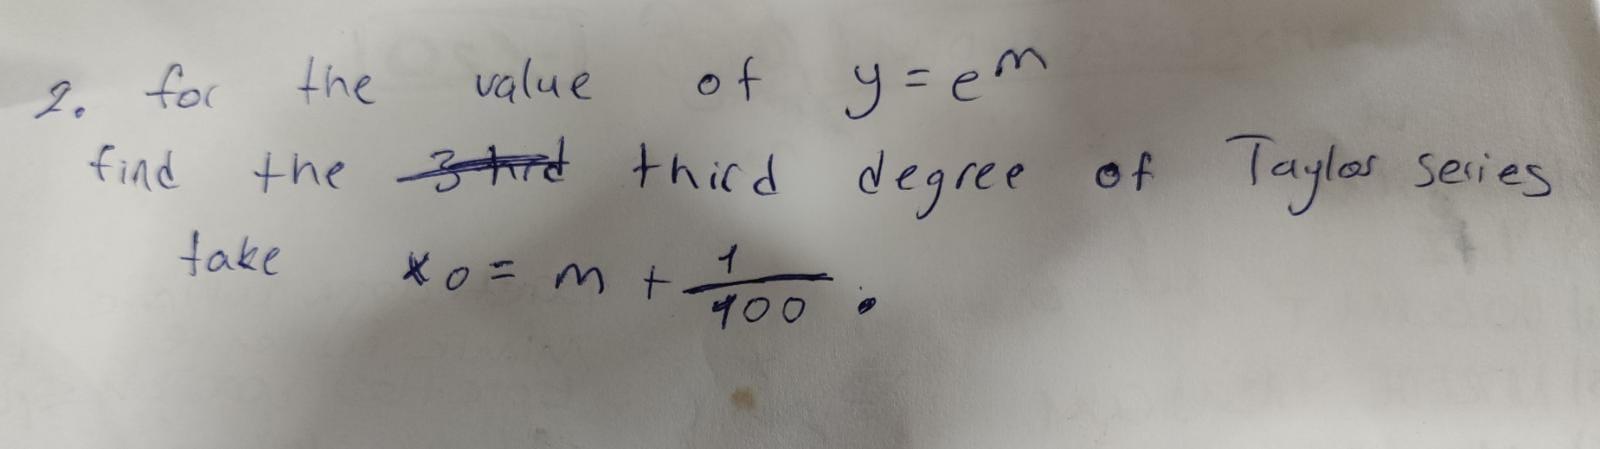 2. for the value of y = e^m
find the third degree of Taylor series
take x0 = m + 1/100 .